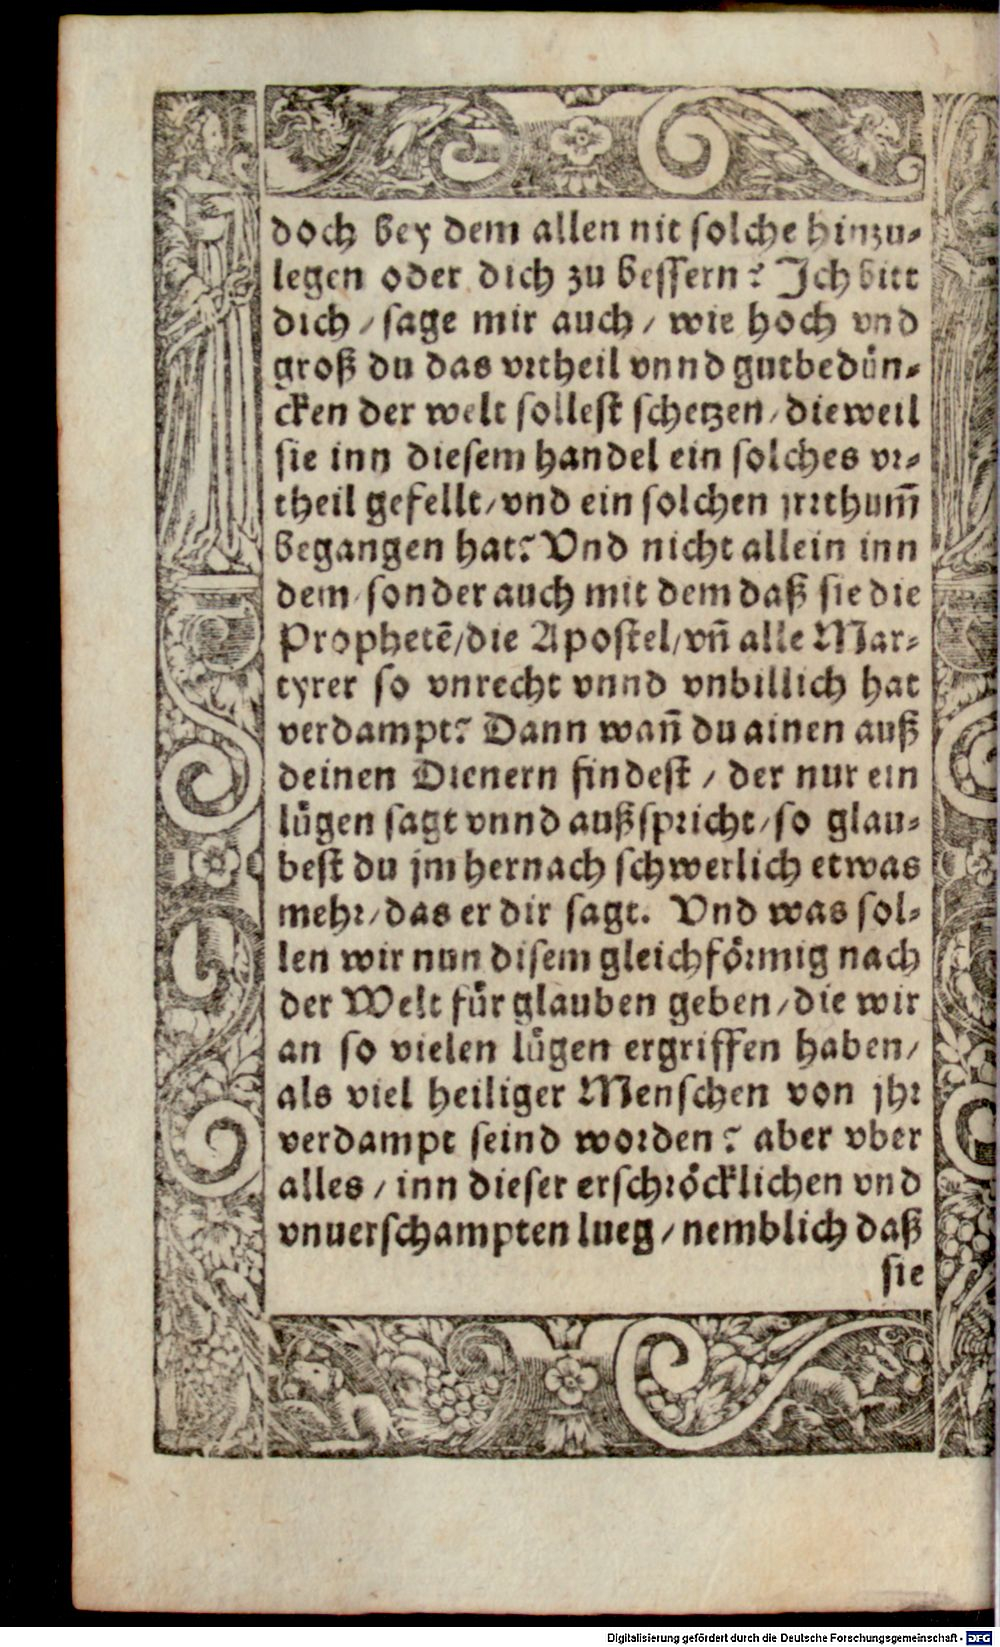 doch bey dem allen nit solche hinzu-
legen oder dich zu bessern? Jch bitt
dich / sage mir auch / wie hoch vnd
groß du das vrtheil vnnd gutbedün-
cken der welt sollest schetzen / dieweil
sie inn diesem handel ein solches vr-
theil gefellt / vnd ein solchen jrrthum̄
begangen hat? Vnd nicht allein inn
dem / sonder auch mit dem daß sie die
Prophetē / die Apostel / vn̄ alle Mar-
tyrer so vnrecht vnnd vnbillich hat
verdampt? Dann wan̄ du ainen auß
deinen Dienern findest / der nur ein
lügen sagt vnnd außspricht / so glau-
best du jm hernach schwerlich etwas
mehr / das er dir sagt. Vnd was sol-
len wir nun disem gleichförmig nach
der Welt für glauben geben / die wir
an so vielen lügen ergriffen haben /
als viel heiliger Menschen von jhr
verdampt seind worden? aber vber
alles / inn dieser erschröcklichen vnd
vnuerschampten lueg / nemblich daß
sie
Digitalisierung gefördert durch die Deutsche Forschungsgemeinschaft - DFG